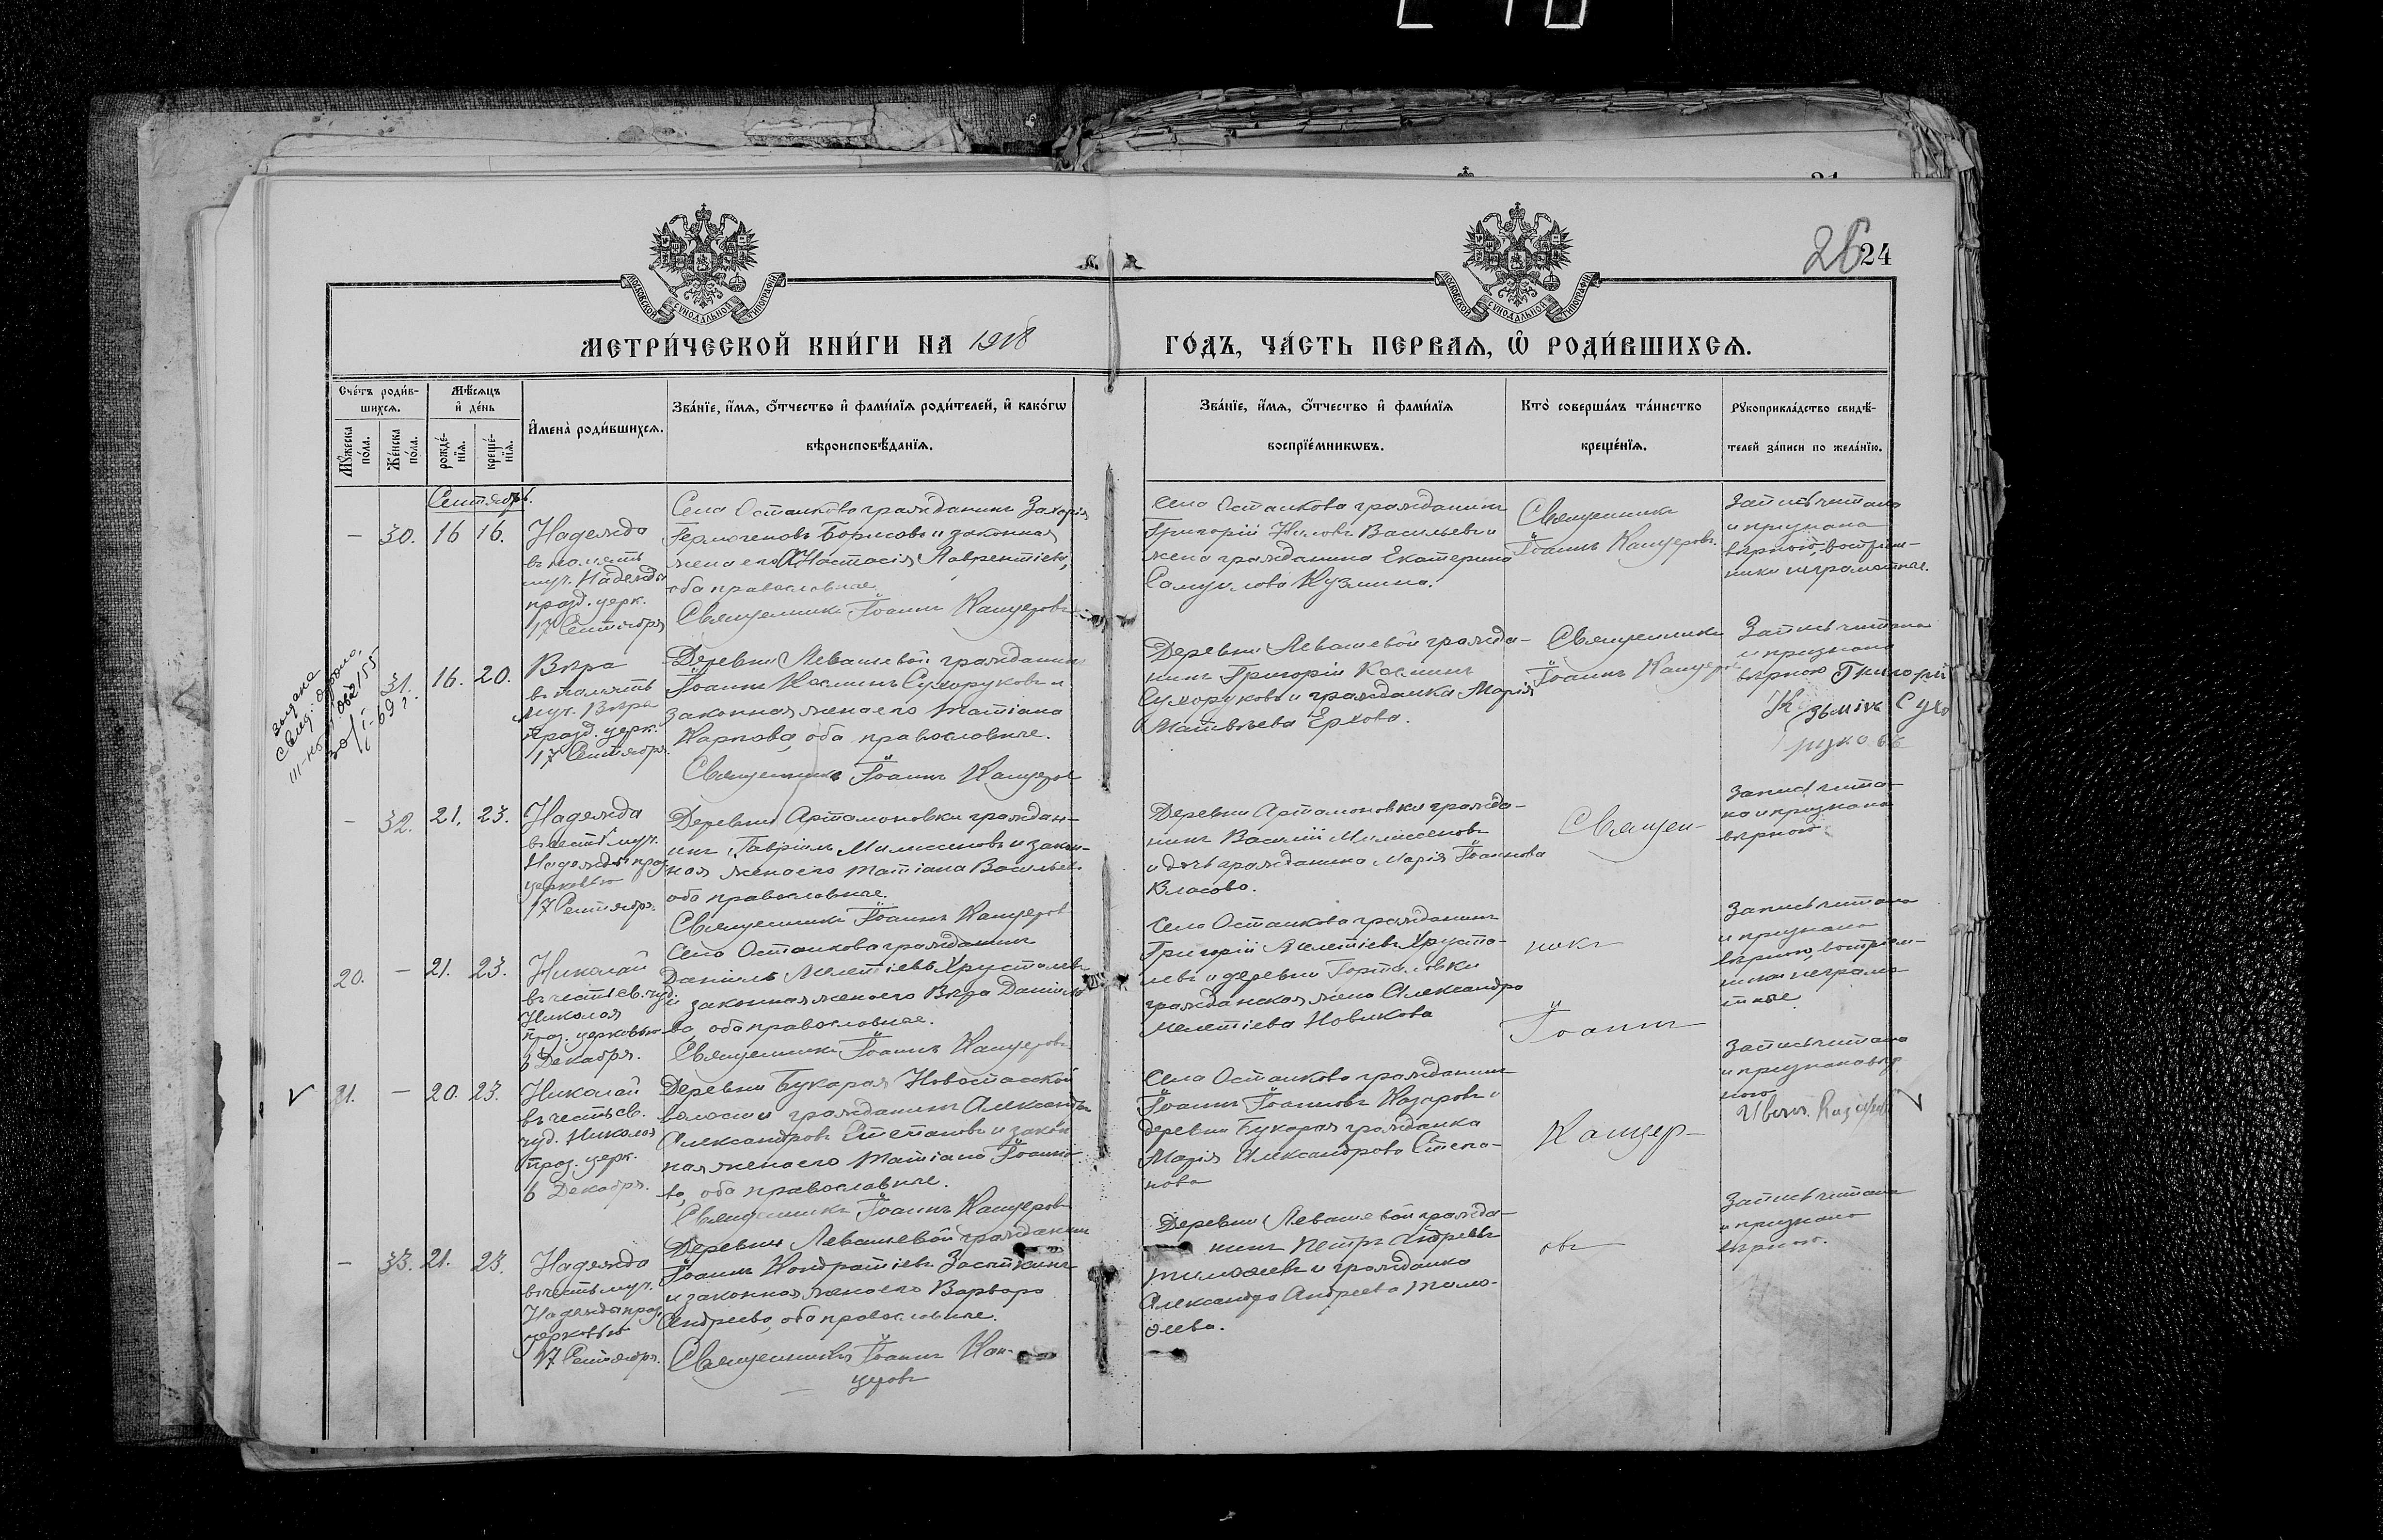 26 24
МОСКОВСКОЙ СУНОДАЛЬНОЙ ТИПОГРАФІИ
МОСКОВСКОЙ СУНОДАЛЬНОЙ ТИПОГРАФІИ
МЕТРИ́ЧЕСКОЙ КНИ́ГИ НА 1918 ГО́ДЪ, ЧА́СТЬ ПЕРВАѦ, Ѡ РОДИ́ВШИХСѦ.
Счётъ роди́вшихсѧ.
Мꙋ́жеска по́ла.
Же́нска по́ла.
Мѣ́сѧцъ и де́нь
рожде́нїѧ.
креще́нїѧ.
Имена̀ роди́вшихсѧ.
Зва́нїе, и́мѧ, о́тчество и фами́лїѧ роди́телей, и како́гѡ
вѣроисповѣ́данїѧ.
Зва́нїе, и́мѧ, о́тчество и фами́лїѧ
воспрїе́мникѡвъ.
Кто̀ соверша́лъ та́инство
креще́нїѧ.
Рꙋкоприкла́дство свидѣ́-
телей за́писи по жела́нїю.
Сентябрь.
— 30. 16 16.
Надежда
въ память
муч. Надежды
празд. церк.
17 Сентября
Села Останкова гражданинъ Захарія
Борисовъ и законная
жена его Анастасія Лаврентіева,
оба православные.
Священникъ Іоаннъ Канцеровъ
Села Останкова гражданинъ
Григорій Васильевъ и
жена гражданина Екатерина
Самуилова Кузмина.
Священникъ
Іоаннъ Канцеровъ.
Запись читана
и признана
вѣрною, воспріем-
ники неграмотные.
выдана
31. 16. 20.
Вѣра
въ память
муч. Вѣры
празд. церк.
17 Сентября.
Деревни Левашевой гражданинъ
Іоаннъ Косминъ Сухоруковъ и
законная жена его Татіана
Карпова, оба православные.
Священникъ Іоаннъ Канцеров
Деревни Левашевой гражда-
нинъ Григорій Косминъ
Сухоруковъ и гражданка Марія
Матвѣева Ерхова.
Священникъ
Іоаннъ Канцеров
Запись читана
и признана
вѣрною Григорій
Сухо
руковъ
— 32. 21. 23.
Надежда
въ честь муч.
Надежды праз.
церковью
17 Сентября.
Деревни Артамоновки граждан-
инъ Гавріилъ и закон-
ная жена его Татіана Васильева
оба православные.
Священникъ Іоаннъ Канцеров
Деревни Артамоновки гражда-
нинъ Василій
и дочь гражданина Марія Іоаннова
Власова.
Священ-
Запись чита-
на и признана
вѣрною
20. — 21. 23.
Николай
въ честь св. чуд.
Николая
праз. церковью
6 Декабря.
Села Останкова гражданинъ
Даніилъ Мелетіевъ Хрусталевъ
и законная жена его Вѣра Данило-
ва, оба православные.
Священникъ Іоаннъ Канцеровъ
Села Останкова гражданинъ
Григорій Мелетіевъ Хруста-
левъ и деревни
гражданская жена Александра
Мелетіева Новикова
никъ
Іоаннъ
Запись читана
и признана
вѣрною, воспріем-
ники неграмо-
тные.
21. — 20. 23.
Николай
въ честь св.
чуд. Николая
праз. церк.
6 Декабря.
Деревни Букарая Новоспасской
волости гражданинъ Александръ
Александровъ Степановъ и закон
ная жена его Татіана Іоанно-
ва, оба православные.
Священникъ Іоаннъ Канцеровъ
Села Останкова гражданинъ
Іоаннъ Іоанновъ Казаровъ и
деревни Букарая гражданка
Марія Александрова Степа-
нова
Канцер-
Запись читана
и признана вѣр
ною
Иванъ
— 33. 21. 23.
Надежда
въ честь муч.
Надежды праз.
церковью
17 Сентября.
Деревни Левашевой гражданинъ
Іоаннъ Кондратіевъ
и законная жена его Варвара
Андреева, оба православные.
Священникъ Іоаннъ Кан-
церовъ
Деревни Левашевой гражда-
нинъ Петръ Андреевъ
Тимофеевъ и гражданка
Александра Андреева Тимо-
феева.
овъ
Запись читана
и признана
вѣрною.